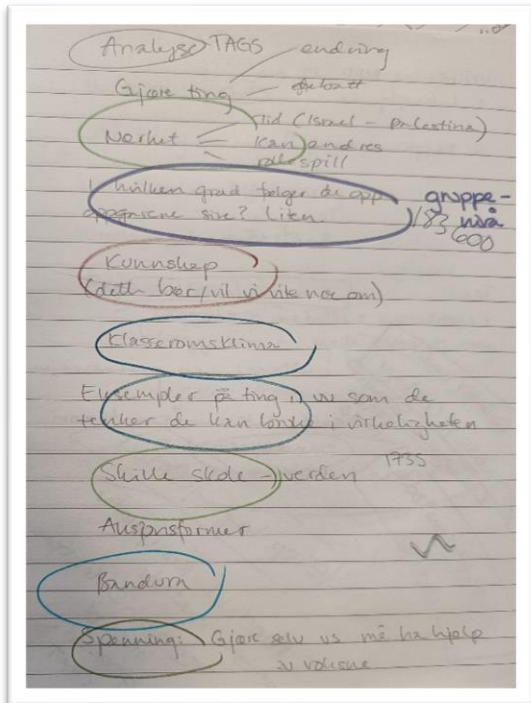 Analyse TAGS endring
Gjøre ting debatt
Nærhet tid (Israel – Palestina)
kan endres
rollespill
I hvilken grad følger de opp gruppe-
oppgavene sine? Liten. nivå
183 600
Kunnskap
(dette bør/vil vi vite noe om)
Klasseromsklima
Eksempler på ting som de
tenker de kan bruke i virkeligheten
1735
Skille skole – verden
Bandura
Spenning: Gjøre selv vs må ha hjelp
av voksne